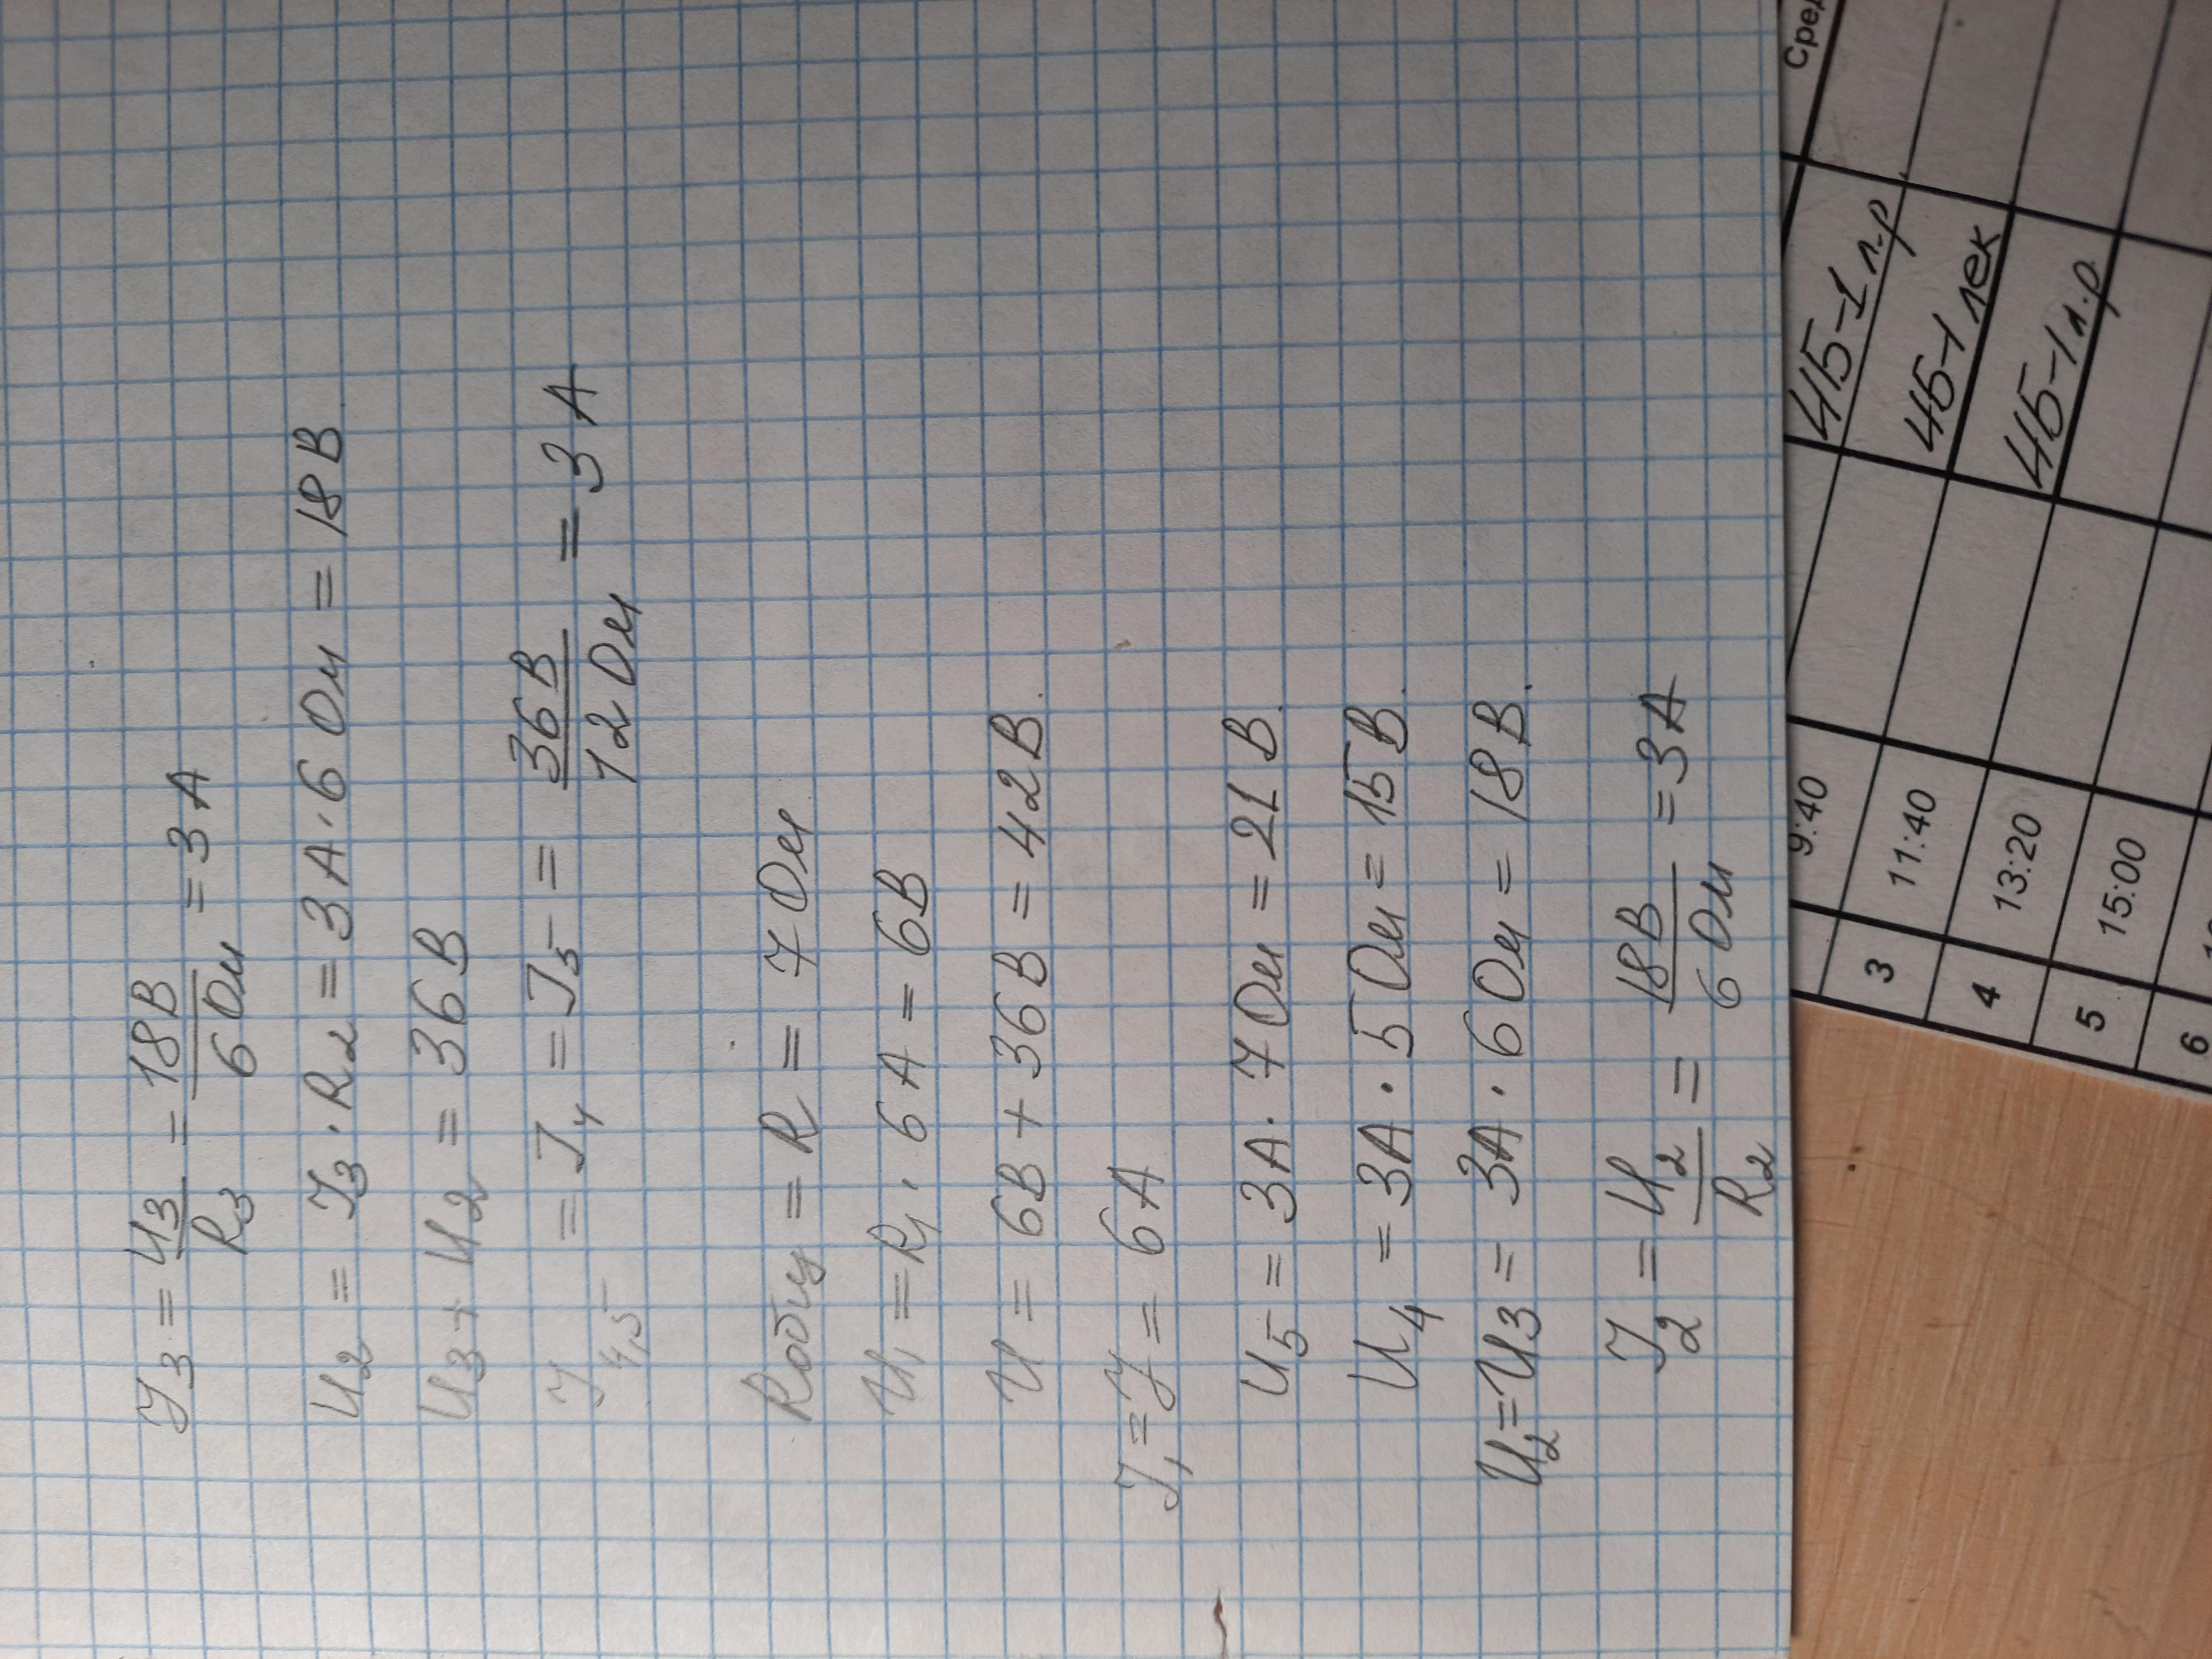 I₃ = U₃/R₃ = 18В/6 Ом = 3 А
U₂ = I₃ · R₂ = 3 А · 6 Ом = 18 В
U₃ + U₂ = 36 В
I₄,₅ = I₄ = I₅ = 36 В/12 Ом = 3 А
Rобщ = R = 7 Ом
U₁ = R₁ · 6 А = 6 В
U = 6В + 36 В = 42 В.
I₁ = I = 6 А
U₅ = 3 А · 7 Ом = 21 В.
U₄ = 3А · 5 Ом = 15 В.
U₂ = U₃ = 3А · 6 Ом = 18 В.
I₂ = U₂/R₂ = 18В/6 Ом = 3А
Сред
9:40 4Б-1 л.р
3 11:40 4Б-1 лек
4 13:20 4Б-1 л.р
5 15:00
6